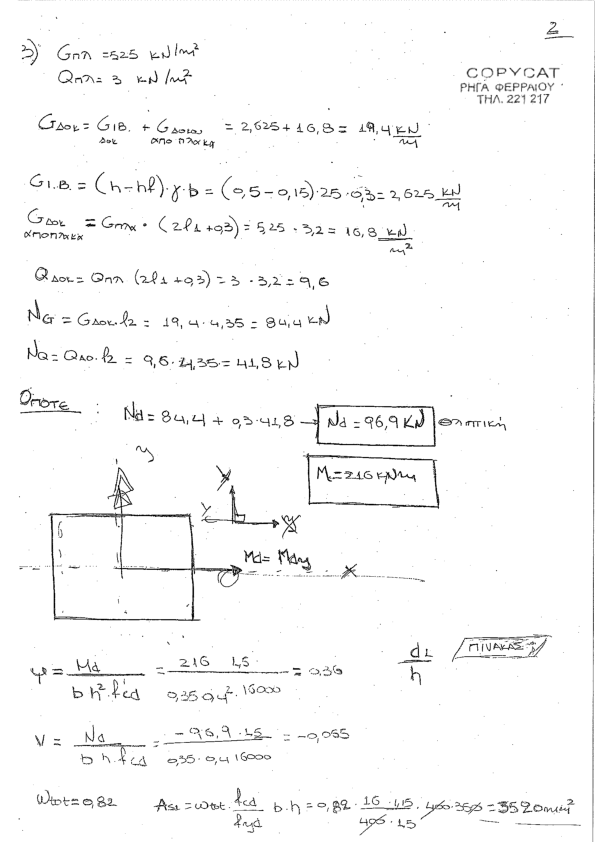 2
3) Gπλ =525 kN/m²
Qπλ= 3 kN/m²
COPYCAT
ΡΗΓΑ ΦΕΡΡΑΙΟΥ
ΤΗΛ. 221 217
GΔοκ = GIB. + GΔοκων = 2,625 + 16,8 = 19,4 kN/m
δοκ απο πλακα
GI.B. = (h-hf)·γ·b = (0,5-0,15)·25·0,3= 2,625 kN/m
GΔοκ = Gπλ · (2l1 +0,3) = 5,25 · 3,2 = 16,8 kN/m²
αποπλακα
QΔοκ = Qπλ (2l1 +0,3) = 3 · 3,2 = 9,6
NG = GΔοκ·l2 = 19,4·4,35 = 84,4 kN
NQ = QΔο·l2 = 9,6·4,35 = 41,8 kN
ΟΠΟΤΕ : Nd = 84,4 + 0,3·41,8 → Nd = 96,9 KN θλιπτική
M=216 kNm
y
x
Y y
Md= Mdy x
μ = Md / b h²·fcd = 216 1,5 / 0,35 0,4²·16000 = 0,36
d1/h ΠΙΝΑΚΑΣ
V = Nd / b h·fcd = -96,9·1,5 / 0,35·0,4 16000 = -0,065
Wtot = 0,82 As1 = ωtot· fcd/fyd b·h = 0,82· 16·1,15/400·1,5 ·400·350 = 3520mm²